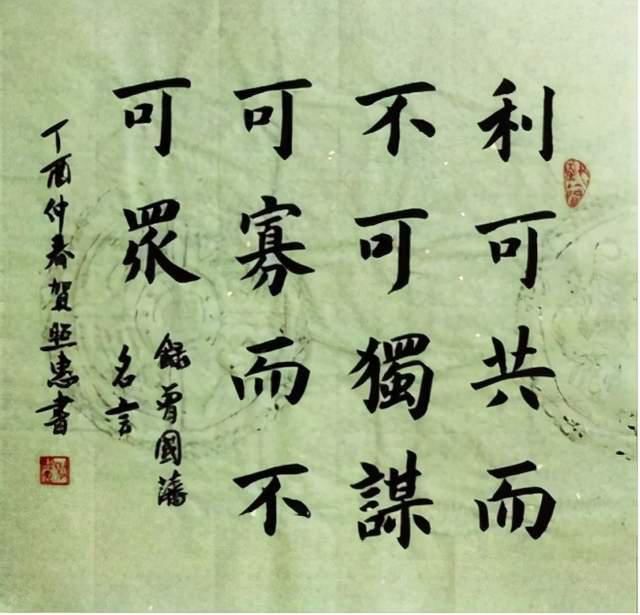 利可共而
不可獨謀
可寡而不
可眾
錄曾國藩
名言
丁酉仲春賀照忠書